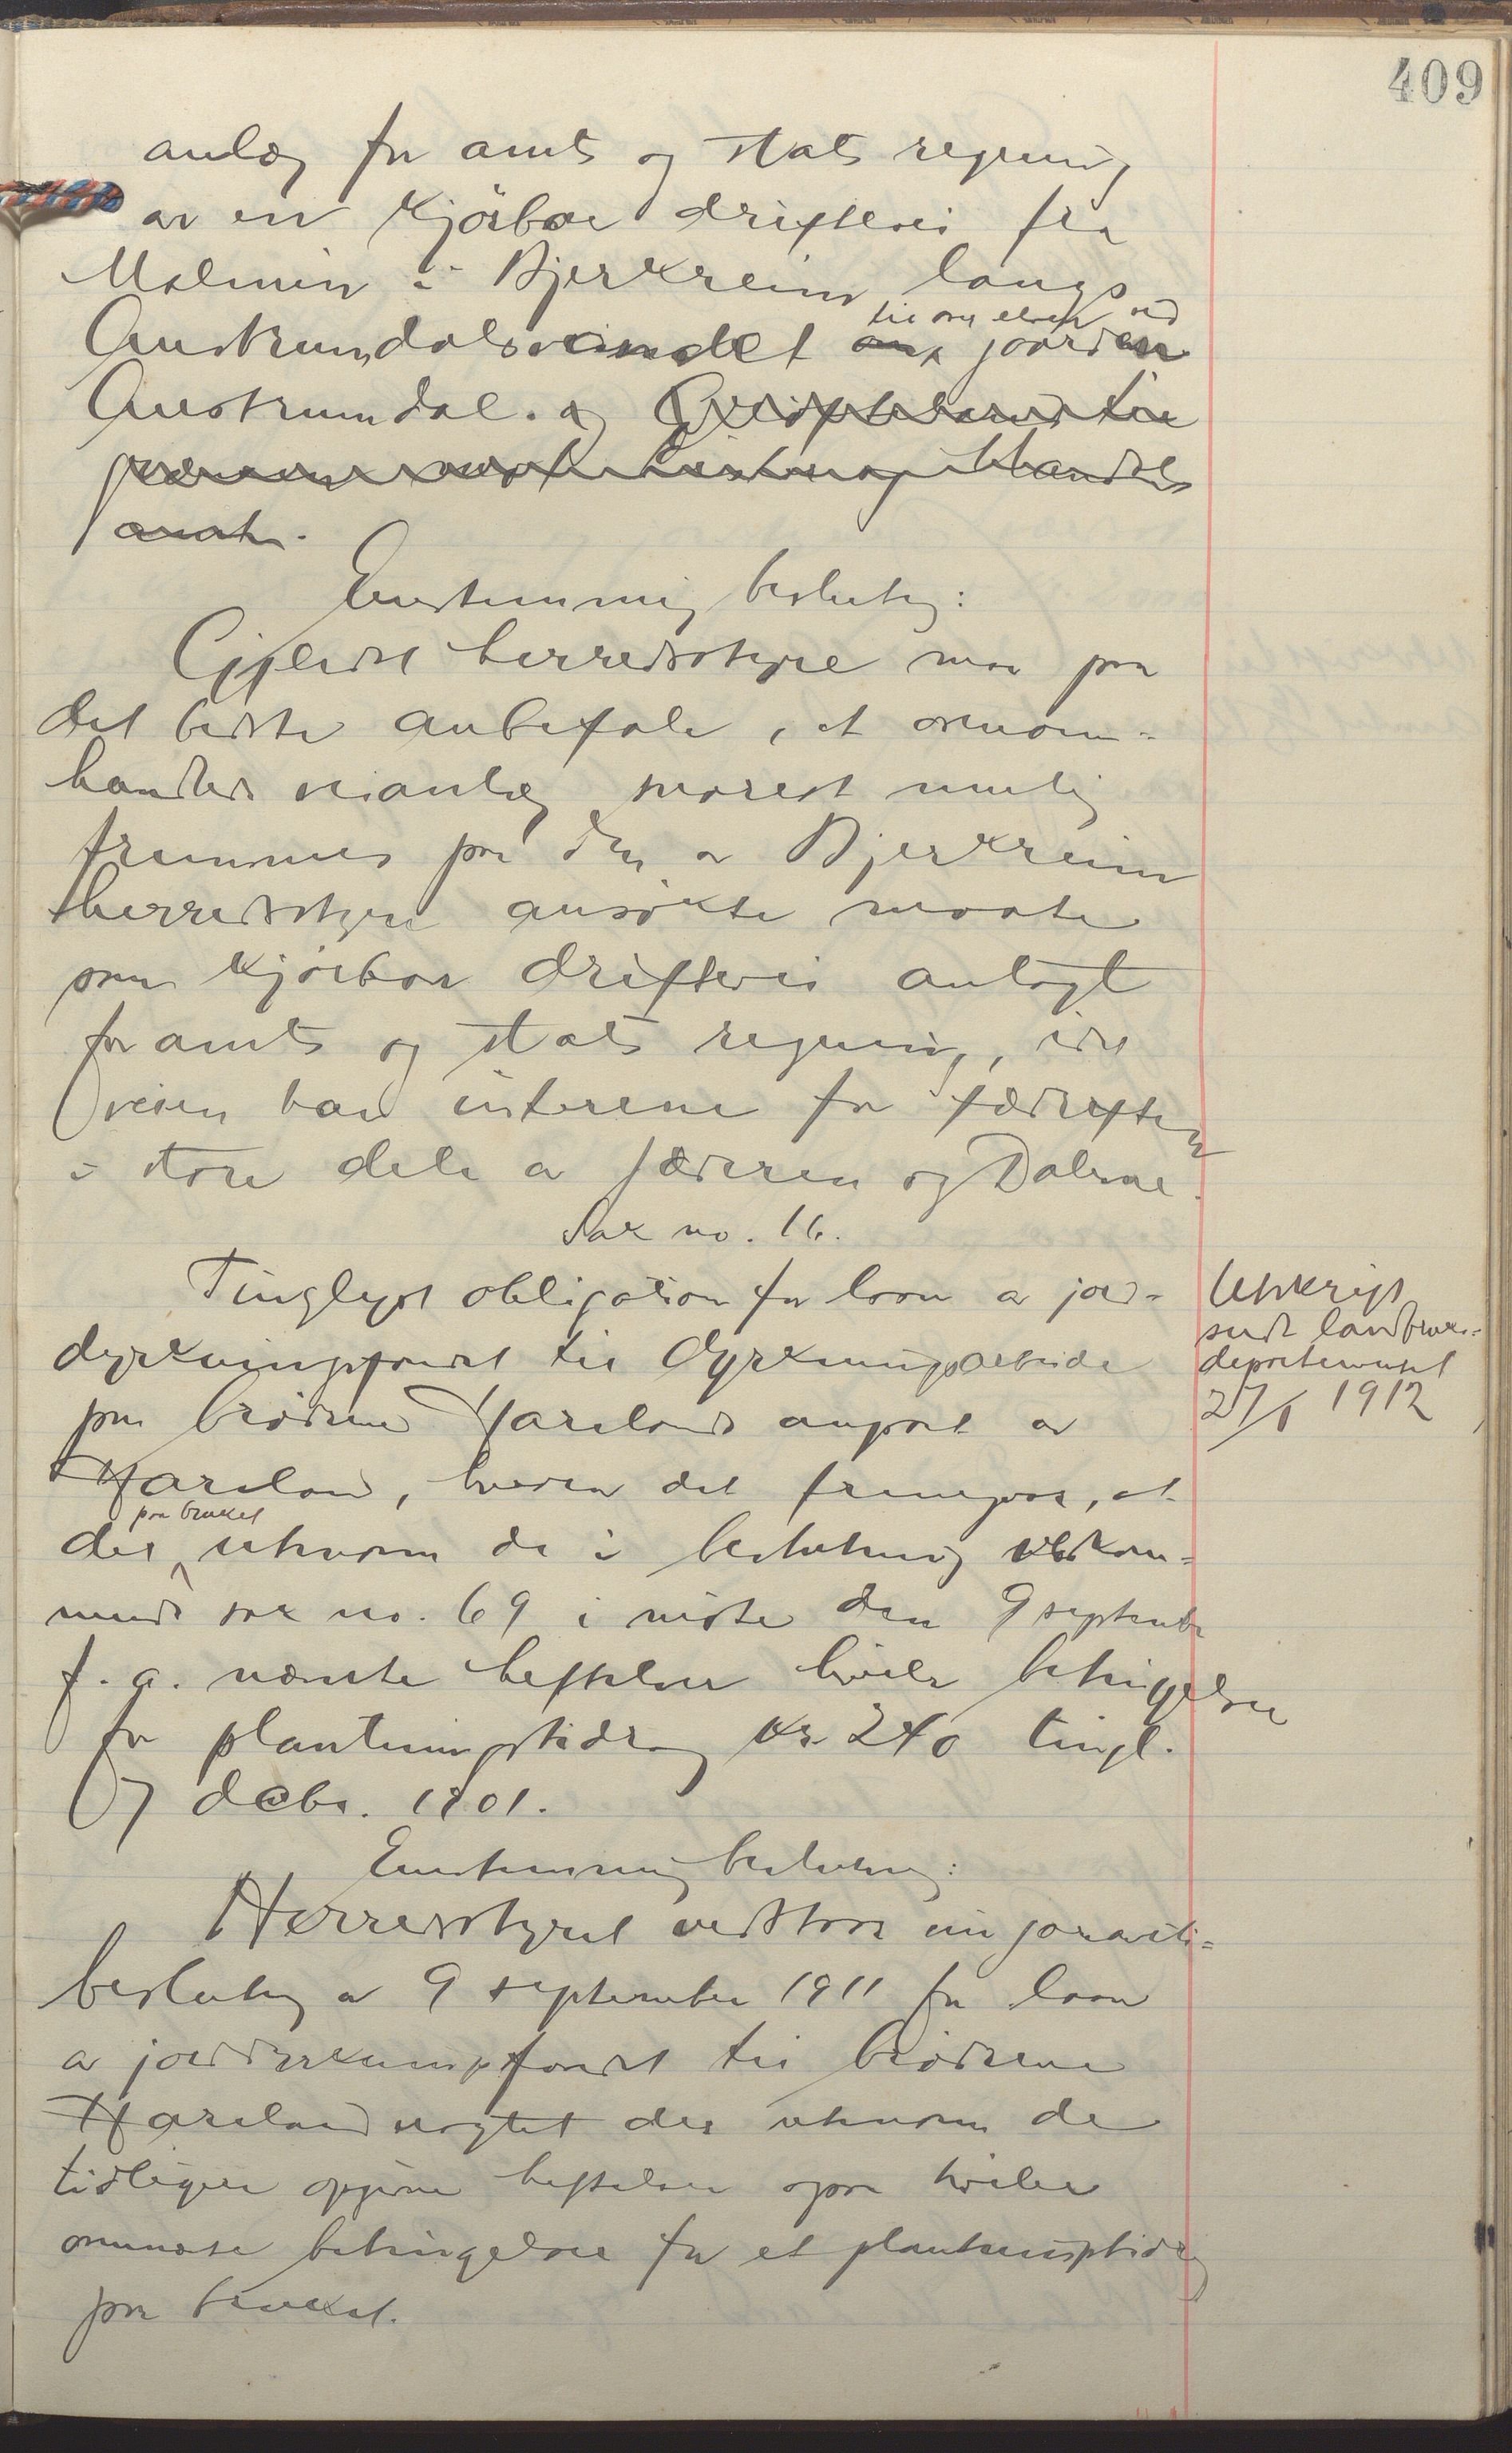 409
anlæg for amts og stats regning
av en kjørbar driftevei fra
Malmin i Bjerkreim langs
Austrumdalsvandet til og elven ved gaarden
Austrumdal. og
Enstemmig beslutng:
Gjesdal herredsstyre maa paa
det bedste anbefale, at ovenom-
handlede veianlæg snarest mulig
fremmes paa den av Bjerkreim
herredsstyre ansøkte maate
som kjørbar driftevei anlagt
for amts og stats regning, idet
veien har interesse for fædriften
i store dele av Jæderen og Dalerne.
Sak no. 16.
Tinglyst obligation for laan av jord-
dyrkningsfondet til dyrkningsarbeide
paa brødrene Haveland anpart av
Haveland, hvorav det fremgaar, at
der paa bruket utenom de i beslutning vedkom-
mende sak no. 69 i møte den 9 septembr
f. a. nævnte heftelser hviler betingelser
for plantningsbidrag kr 240 tingl.
7 decbr. 1901.
Enstemmig beslutng:
Herredsstyret vedstaar sin garanti-
beslutng av 9 september 1911 for laan
av jorddyrkningsfondet til brødrene
Haveland uagtet der utenom de
tidligere opgivne heftelser ogsaa hviler
ommeldte betingelser for et plantningsbidrag
paa bruket.
Utskrift
sendt landbruks-
departementet
27/1 1912